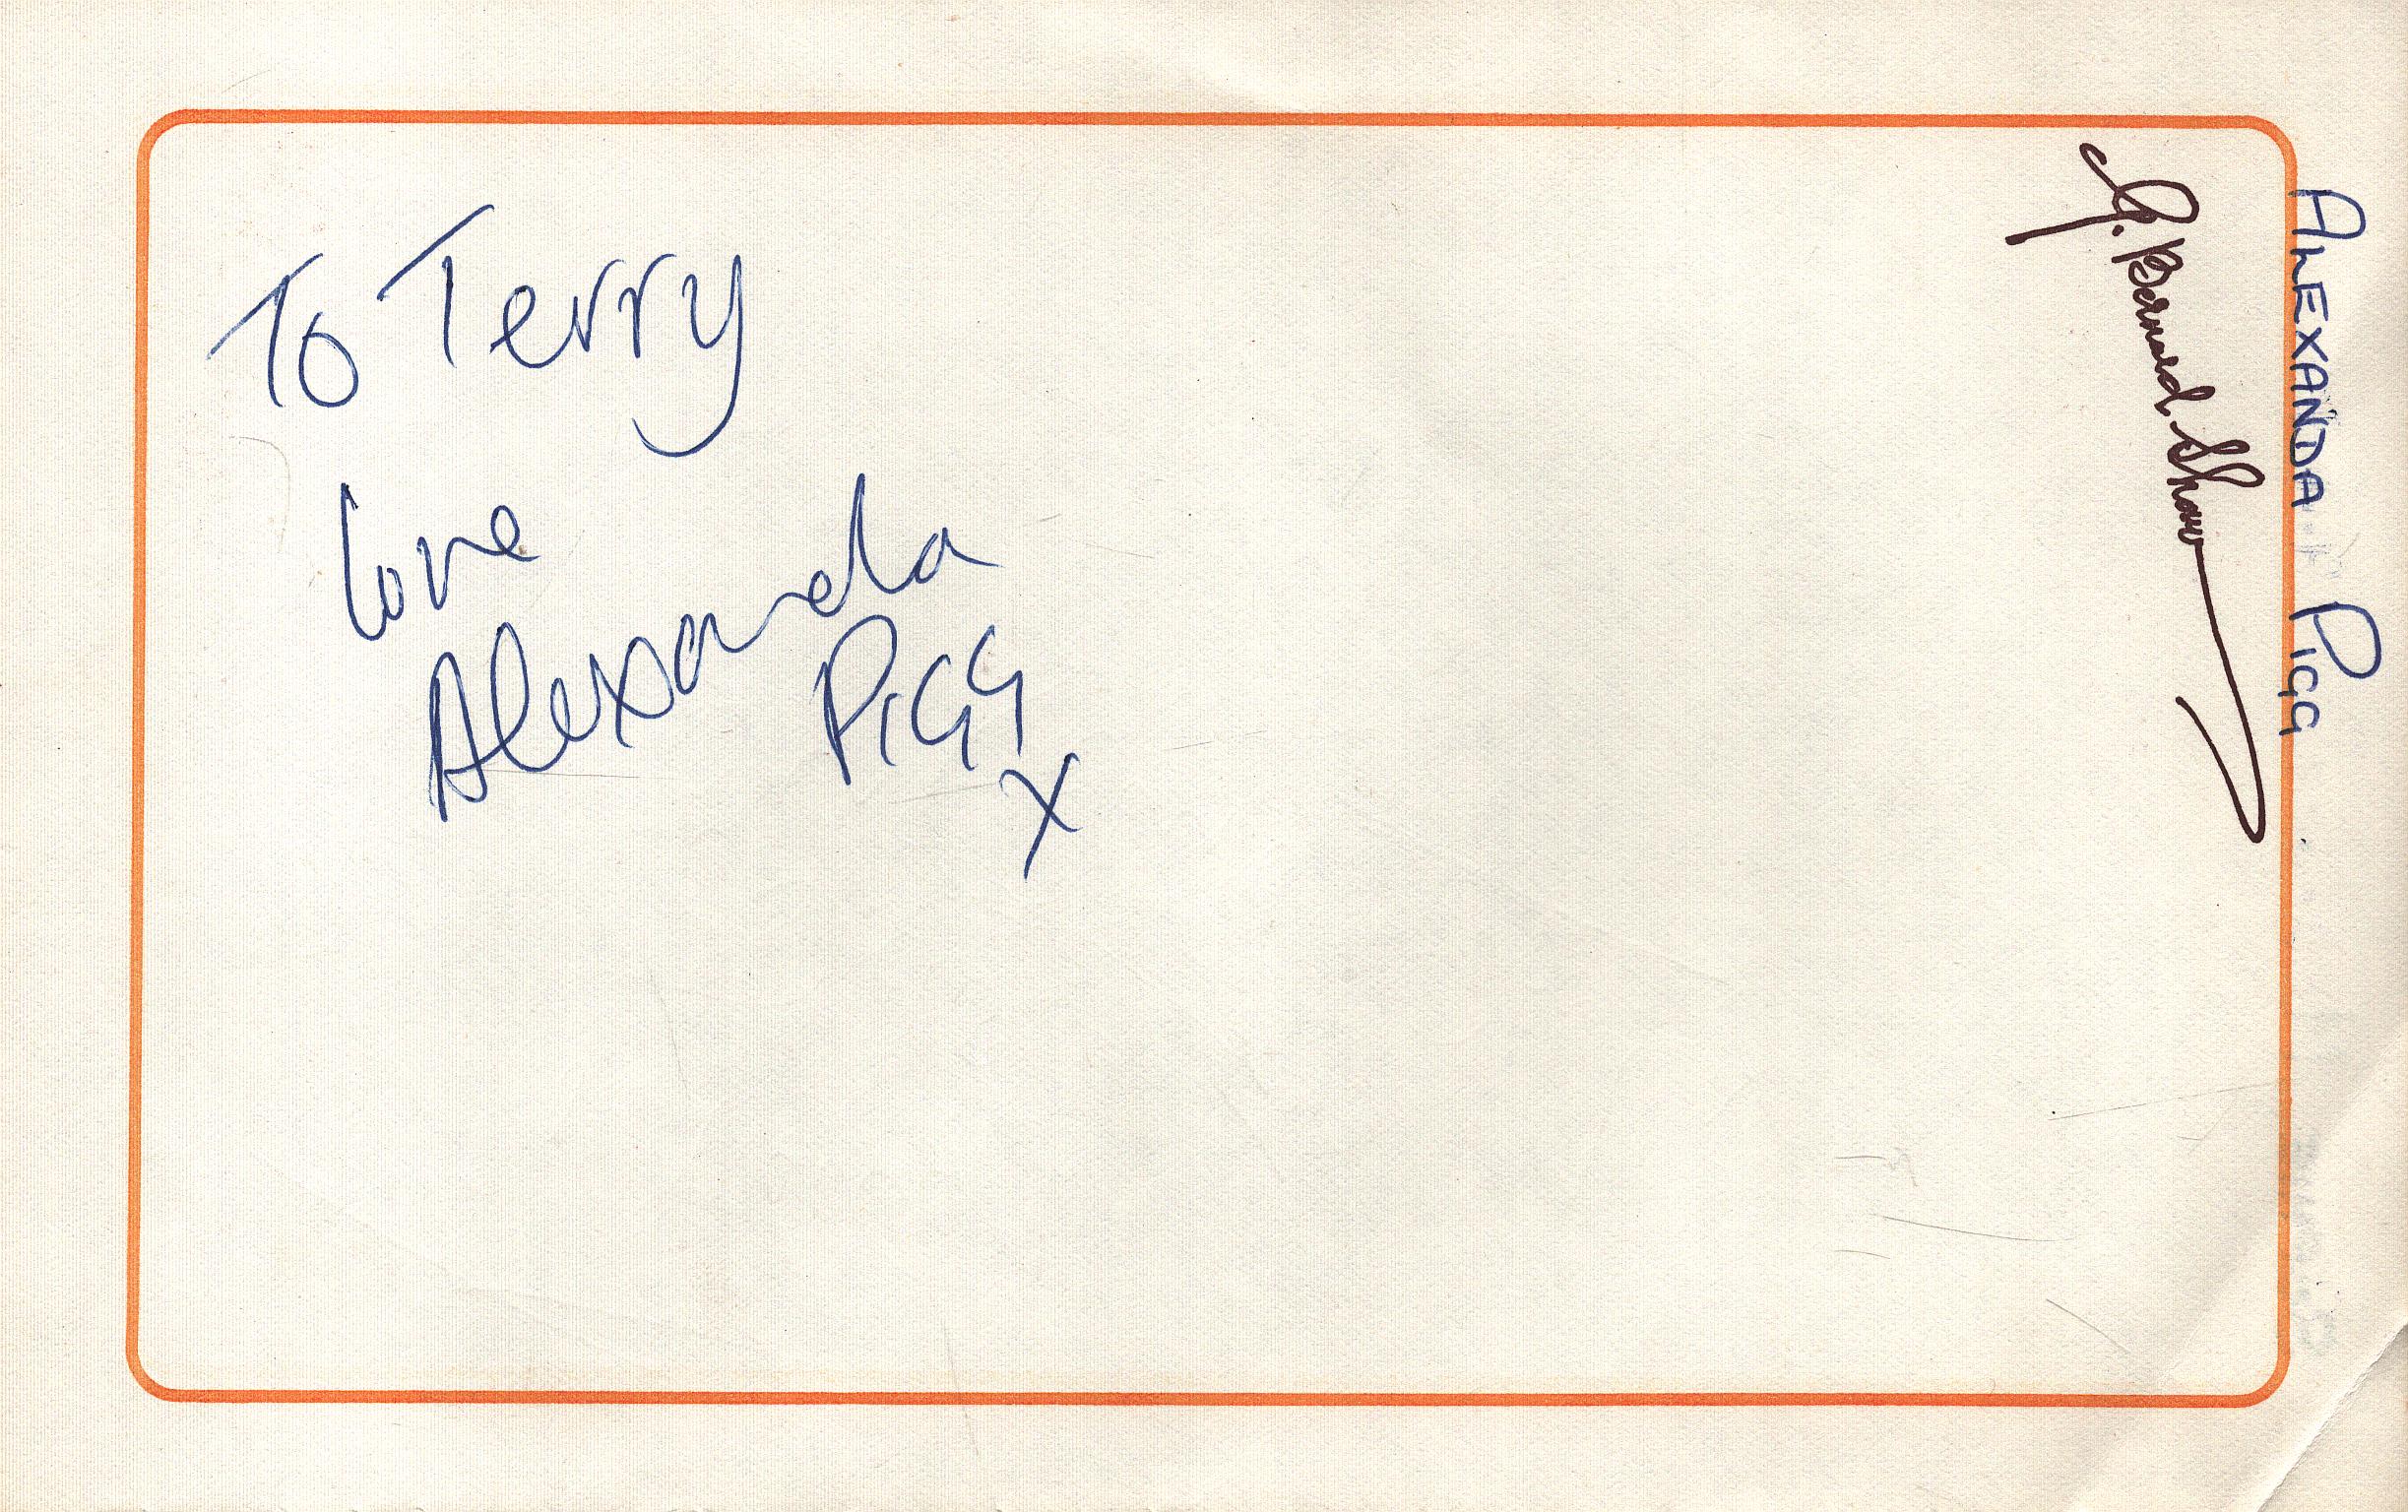 To Terry
love
Alexanda
Pigg
x
G. Bernard Shaw
ALEXANDA PIGG